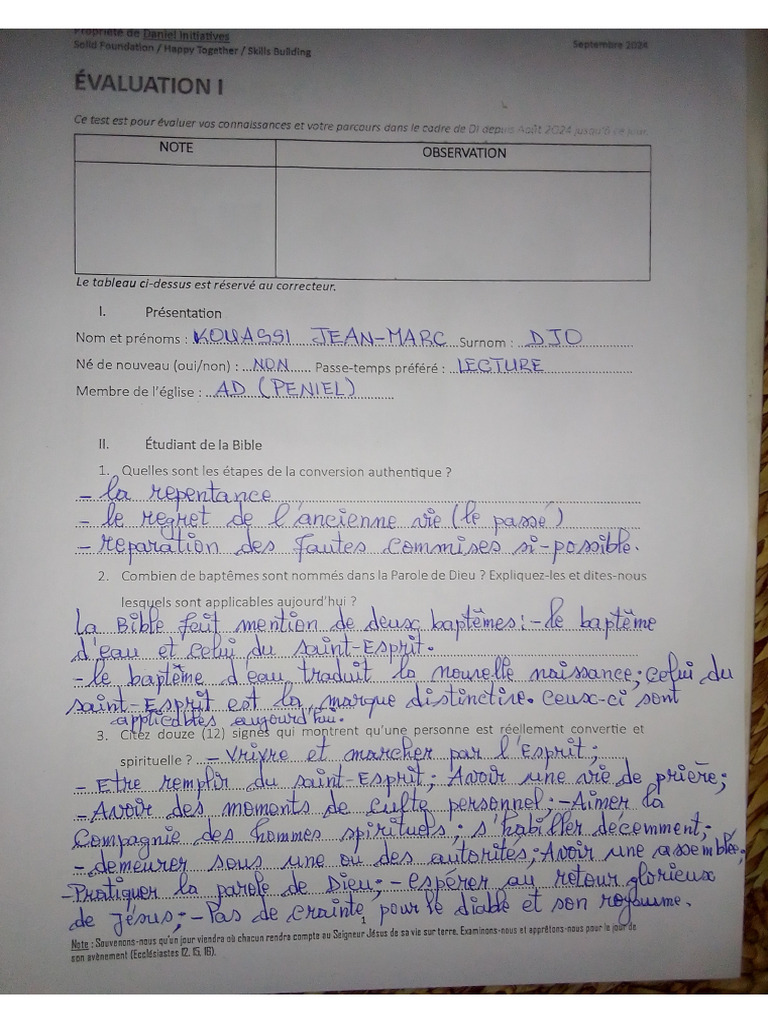 Propriété de Daniel Initiatives
Solid Foundation / Happy Together / Skills Building
Septembre 2024
ÉVALUATION I
Ce test est pour évaluer vos connaissances et votre parcours dans le cadre de DI depuis Août 2024 jusqu'à ce jour.
NOTE
OBSERVATION
Le tableau ci-dessus est réservé au correcteur.
I. Présentation
Nom et prénoms : KOUASSI JEAN-MARC Surnom : DJO
Né de nouveau (oui/non) : NON Passe-temps préféré : LECTURE
Membre de l'église : AD (PENIEL)
II. Étudiant de la Bible
1. Quelles sont les étapes de la conversion authentique ?
- la repentance
- le regret de l'ancienne vie (le passé)
- reparation des fautes commises si-possible.
2. Combien de baptêmes sont nommés dans la Parole de Dieu ? Expliquez-les et dites-nous
lesquels sont applicables aujourd'hui ?
la Bible fait mention de deux baptêmes: - le baptême
d'eau et celui du saint-Esprit.
- le baptême d'eau traduit la nouvelle naissance; celui du
saint-Esprit est la marque distinctive. ceux-ci sont
applicables aujourd'hui.
3. Citez douze (12) signes qui montrent qu'une personne est réellement convertie et
spirituelle ? - Vrivre et marcher par l'Esprit;
- Etre remplir du saint-Esprit; Avoir une vie de prière;
- Avoir des moments de culte personnel; - Aimer la
Compagnie des hommes spirituels; s'habiller décemment;
- demeurer sous une ou des autorités; Avoir une assemblée;
- Pratiquer la parole de Dieu; - espérer au retour glorieux
de Jésus; - Pas de crainte pour le diable et son royaume.
1
Note : Souvenons-nous qu'un jour viendra où chacun rendra compte au Seigneur Jésus de sa vie sur terre. Examinons-nous et apprêtons-nous pour le jour de
son avènement (Ecclésiastes 12. 15. 16).